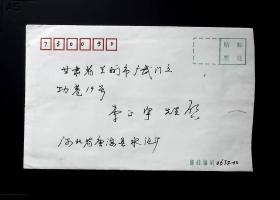 730093
贴邮
票处
甘肃省兰州市广武门立
功巷19号
李正宇 先生 启
河北省唐海县
邮政编码 063200